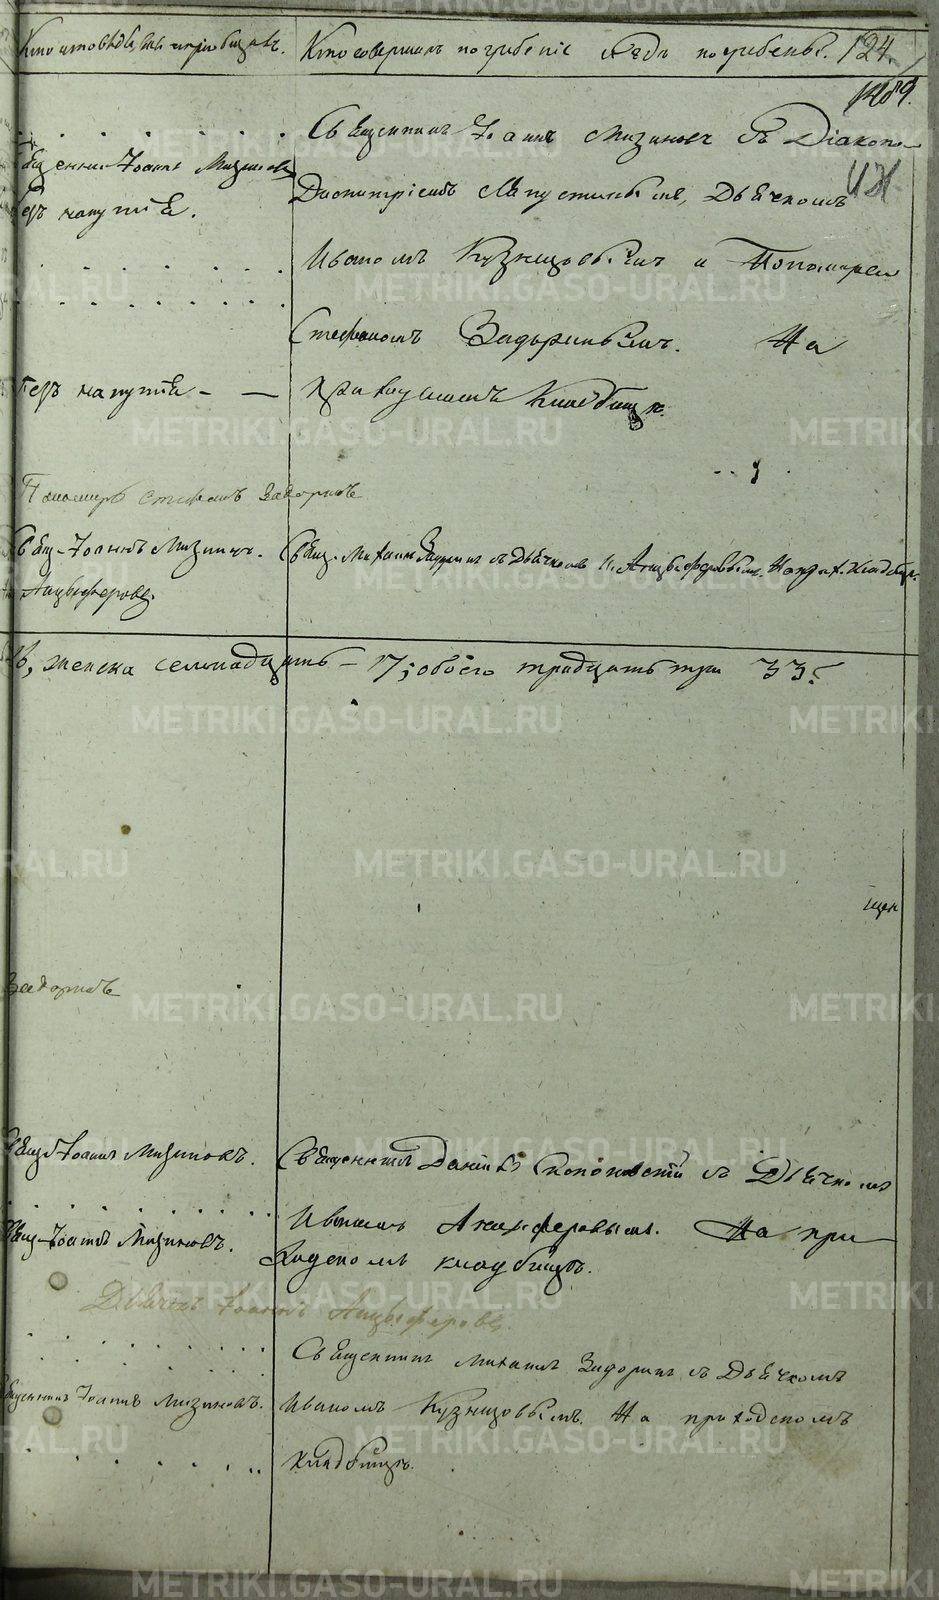 Кто исповѣдывалъ и пріобщалъ. Кто совершалъ погребеніе и гдѣ погребены. 124.
1489.
Священникъ Іоаннъ Мизиновъ съ Діакономъ
Священникъ Іоаннъ Мизиновъ
Димитріемъ Капустинымъ, Дьячкомъ
безъ напутія.
Иваномъ Кузнецовымъ и Пономаремъ
Стефаномъ Задоринымъ. На
безъ напутія — — приходскомъ кладбищѣ.
Пономарь Стефанъ Задоринъ
Свящ. Іоаннъ Мизиновъ. Свящ. Михаилъ Задоринъ съ Дьячкомъ И. Анцыферовымъ. На прих. кладбищѣ.
Анцыферовъ.
женска семнадцать — 17, обоего тридцать три 33.
Задоринъ
Свящ. Іоаннъ Мизиновъ. Священникъ Даніилъ съ Дьячкомъ
Иваномъ Анцыферовымъ. На при
Свящ. Іоаннъ Мизиновъ.
ходскомъ кладбищѣ.
Дьячекъ Іоаннъ Анцыферовъ.
Священникъ Михаилъ Задоринъ съ Дьячкомъ
Священникъ Іоаннъ Мизиновъ. Иваномъ Кузнецовымъ. На приходскомъ
кладбищѣ.
METRIKI.GASO-URAL.RU